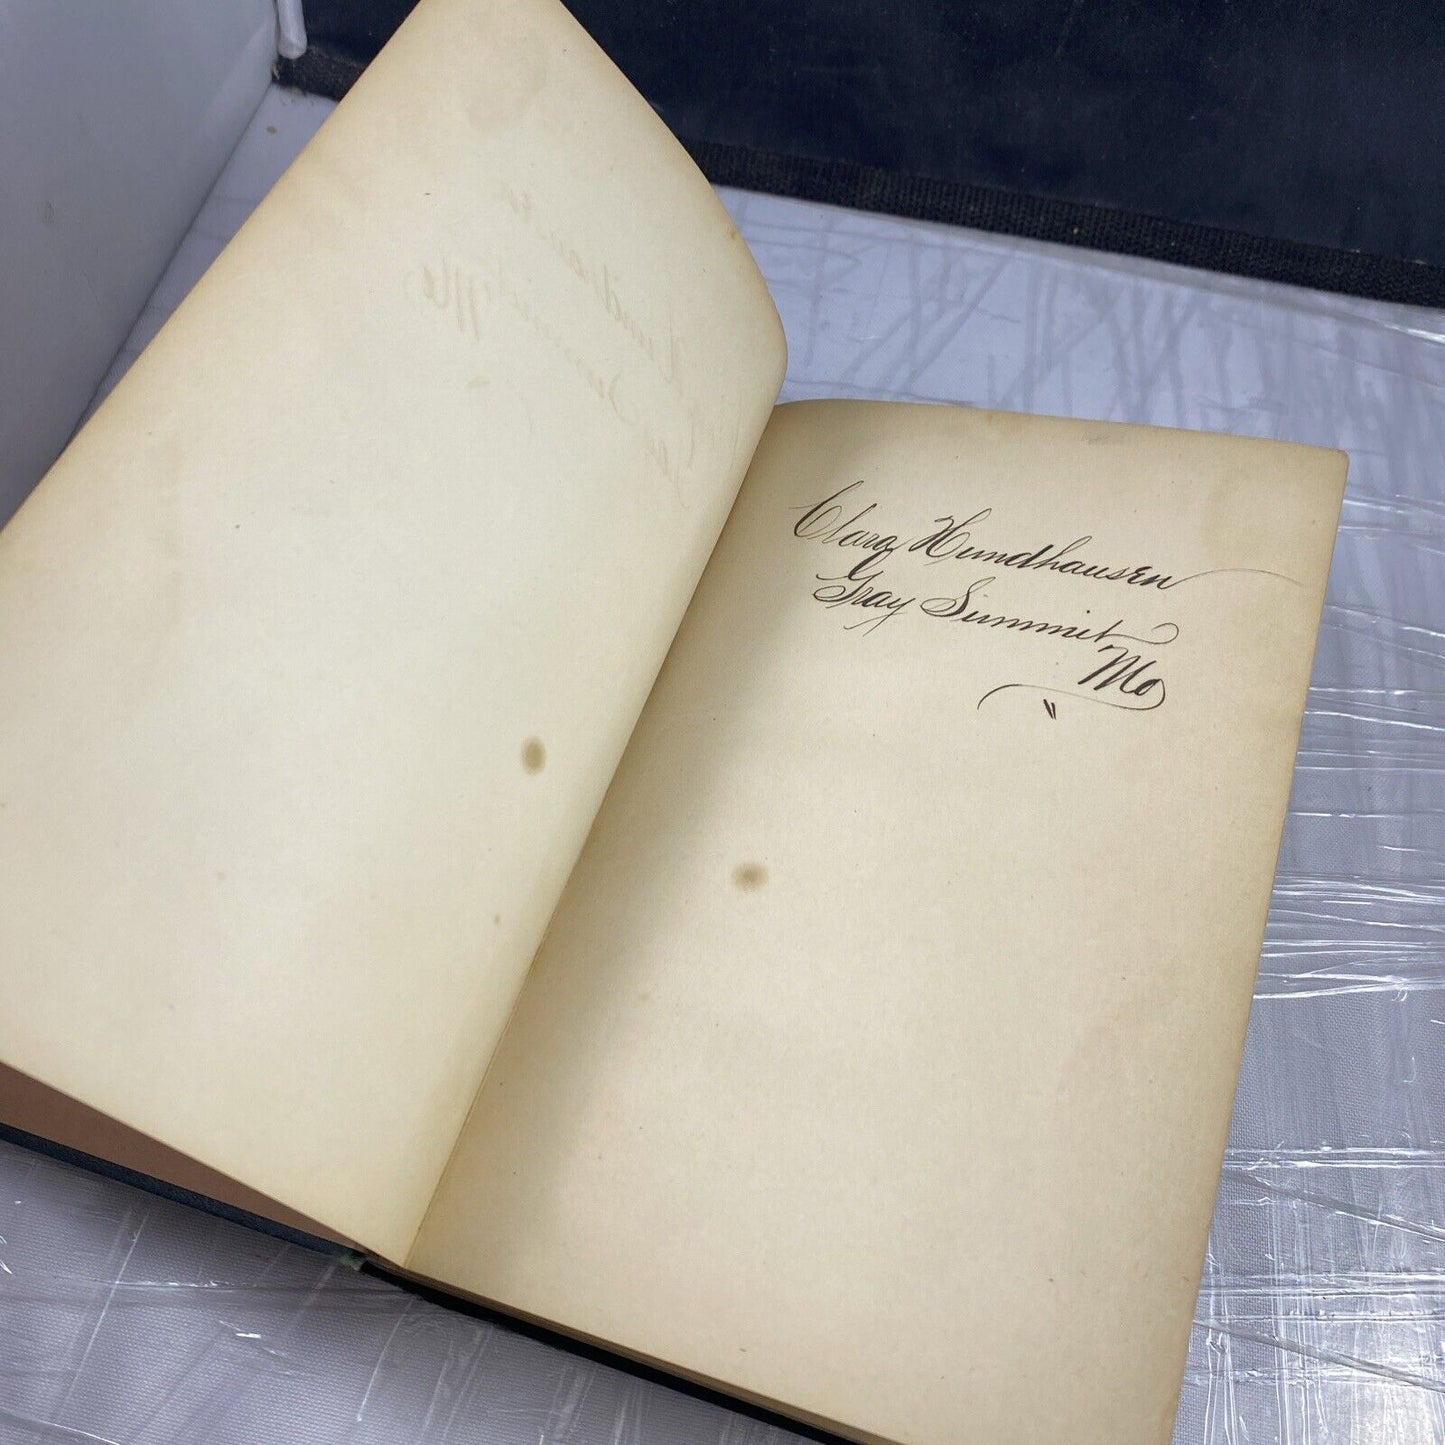 Clara Hundhausen
Gray Summit
Mo